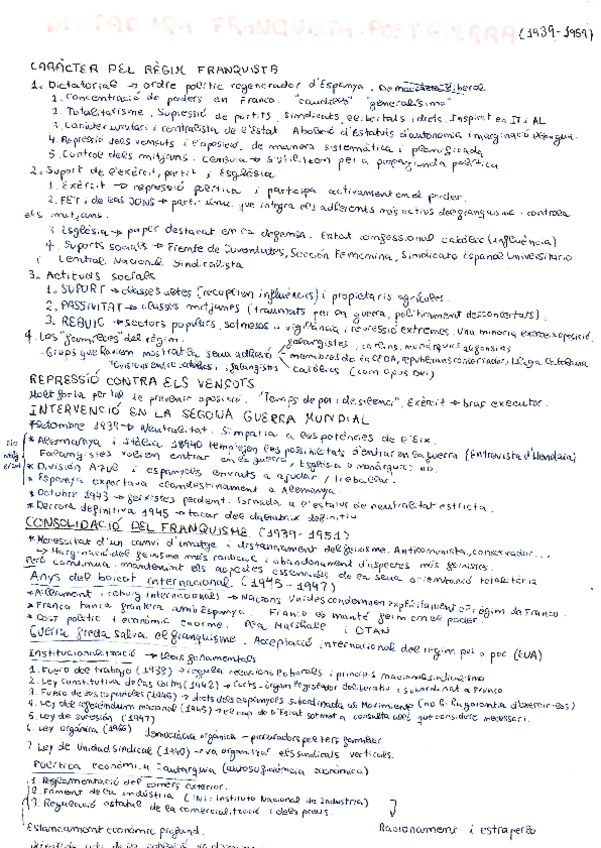 DICTADURA FRANQUISTA. POSTGUERRA (1939-1959)
CARÀCTER DEL RÈGIM FRANQUISTA
1. Dictatorial → ordre polític regenerador d'Espanya. Democràcia liberal.
1. Concentració de poders en Franco. "caudillo" "generalísimo"
2. Totalitarisme. Supressió de partits, sindicats, llibertats i drets. Inspirat en IT i AL
3. Caràcter unitari i centralista de l'Estat. Abolició d'Estatuts d'autonomia i marginació
4. Repressió dels vençuts i l'oposició, de manera sistemàtica i planificada
5. Control dels mitjans. Censura → s'utilitzen per a propaganda política
2. Suport de l'exèrcit, partit i Església
1. Exèrcit → repressió política i participa activament en el poder.
2. FET i de las JONS → partit únic que integra els adherents més actius del franquisme. controla
els mitjans.
3 Església → paper destacat en la defensa. Estat confessional catòlic (influència)
4. Suports socials → Frente de Juventudes, Sección Femenina, Sindicato Español Universitario
i Central Nacional Sindicalista
3. Actituds socials
1. SUPORT → classes altes (recuperen influències) i propietaris agrícoles.
2. PASSIVITAT → classes mitjanes (traumats per la guerra, políticament desconcertats).
3. REBUIG → sectors populars, sotmesos a vigilància i repressió extremes. Una minoria exerceix oposició.
4. Les "famílies" del règim.
falangistes, carlins, monàrquics alfonsins
- Grups que havien mostrat la seua adhesió membres de la CEDA, republicans conservadors, Lliga Catalana
Tensions entre catòlics i falangistes catòlics (com Opus Dei)
REPRESSIÓ CONTRA ELS VENÇUTS
Molt forta per tal de prevenir oposició. "Temps de por i de silenci". Exèrcit → braç executor.
INTERVENCIÓ EN LA SEGONA GUERRA MUNDIAL
1939 → Neutralitat. Simpatia a les potències de l'Eix.
No
* Alemanya i Itàlia 1940 les possibilitats d'entrar en la guerra (Entrevista d'Hendaia)
Falangistes volien entrar en la guerra, Església o monàrquics no.
* División Azul i espanyols enviats a ajudar / treballar.
* Espanya exportava clandestinament a Alemanya.
* Octubre 1943 → feixistes perdent. Tornada a l'estatus de neutralitat estricta.
* Derrota definitiva 1945 →
CONSOLIDACIÓ DEL FRANQUISME (1939-1951)
* Necessitat d'un canvi d'imatge i distanciament del feixisme. Anticomunista, conservador...
↳ Marginació del feixisme més radical i abandonament d'aspectes més feixistes.
Però continua mantenint els aspectes essencials de la seua orientació totalitària
Anys del boicot internacional (1945-1947)
* Aïllament i rebuig internacionals → Nacions Unides condemnen explícitament el règim de Franco.
* França tanca frontera amb Espanya. Franco es manté ferm en el poder.
* Cost polític i econòmic enorme. Pla Marshall i OTAN
Guerra freda salva el franquisme. Acceptació internacional del règim poc a poc (EUA)
Institucionalització → Lleis fonamentals
1. Fuero del trabajo (1938) → regula relacions laborals i principis nacionalsindicalisme
2. Ley Constitutiva de las Cortes (1942) → Corts - òrgan legislador deliberatiu i subordinat a Franco
3. Fuero de los españoles (1945) → drets dels espanyols subordinada al Movimiento (no hi ha garantia d'exercir-los)
4. Ley del referéndum nacional (1945) → el cap de l'Estat sotmet a consulta allò que considere necessari.
5. Ley de sucesión (1947)
6. Ley orgánica (1966) democràcia orgànica → procuradors per terç familiar
7 Ley de Unidad Sindical (1940) → va organitzar els sindicats verticals.
Política econòmica: autarquia (autosuficiència econòmica)
1. Reglamentació del comerç exterior.
2. Foment de la indústria (INI: Instituto Nacional de Industria)
3. Regulació estatal de la comercialització i dels preus.
Estancament econòmic profund. Racionament i estraperlo